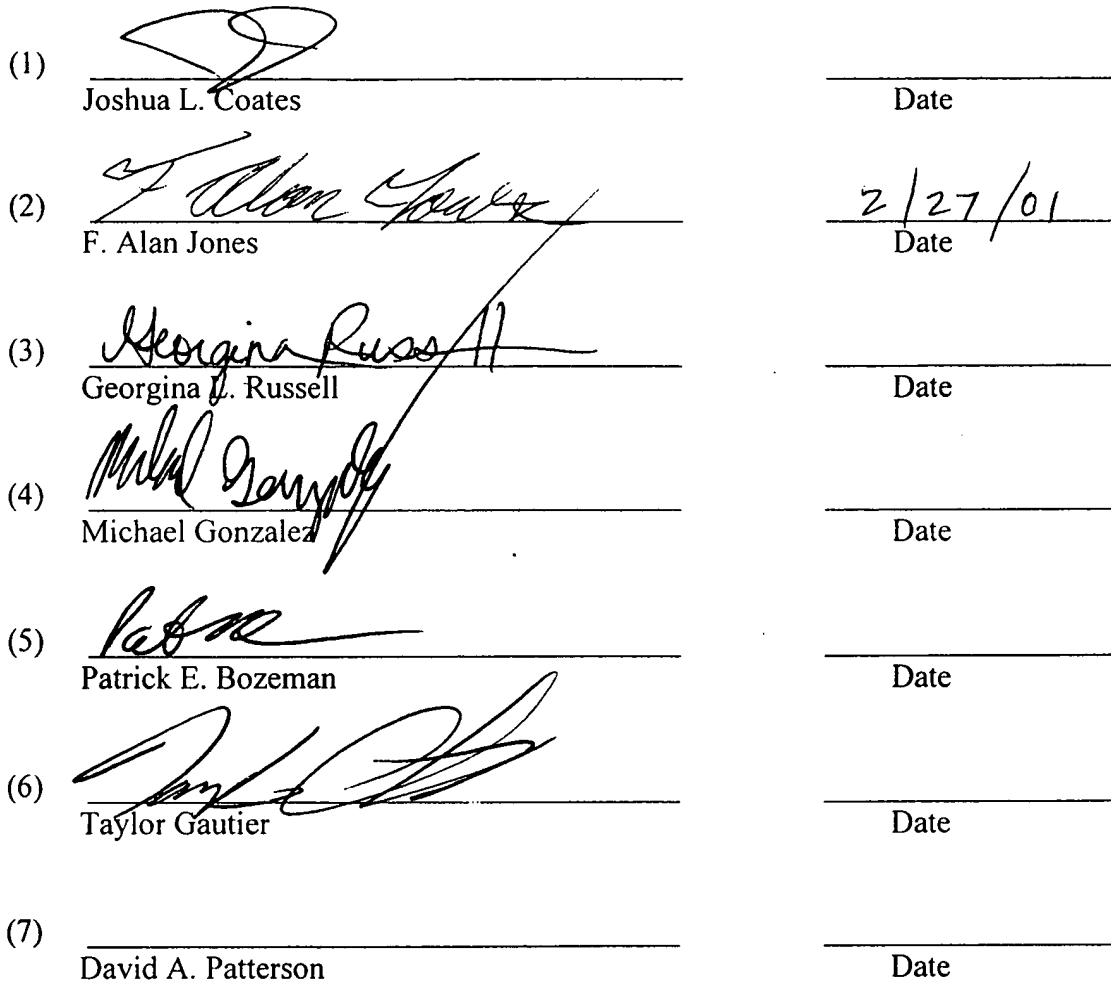 (1)
Joshua L. Coates Date
(2) F Alan Jones 2/27/01
F. Alan Jones Date
(3) Georgina Russell
Georgina L. Russell Date
(4) Michael Gonzalez
Michael Gonzalez Date
(5)
Patrick E. Bozeman Date
(6)
Taylor Gautier Date
(7)
David A. Patterson Date